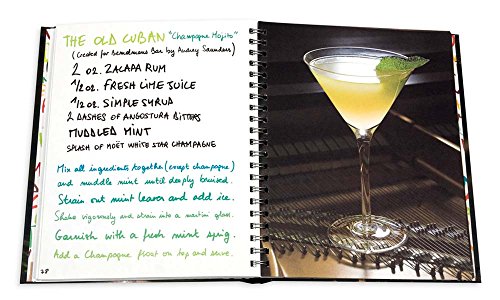 THE OLD CUBAN "Champagne Mojito"
(Created for Bemelmans Bar by Audrey Saunders)
2 OZ. ZACAPA RUM
1/2 OZ. FRESH LIME JUICE
1/2 OZ. SIMPLE SYRUP
2 DASHES OF ANGOSTURA BITTERS
MUDDLED MINT
SPLASH OF MOËT WHITE STAR CHAMPAGNE
Mix all ingredients together (except champagne)
and muddle mint until deeply bruised.
Strain out mint leaves and add ice.
Shake vigorously and strain into a martini glass.
Garnish with a fresh mint sprig.
Add a Champagne float on top and serve.
28